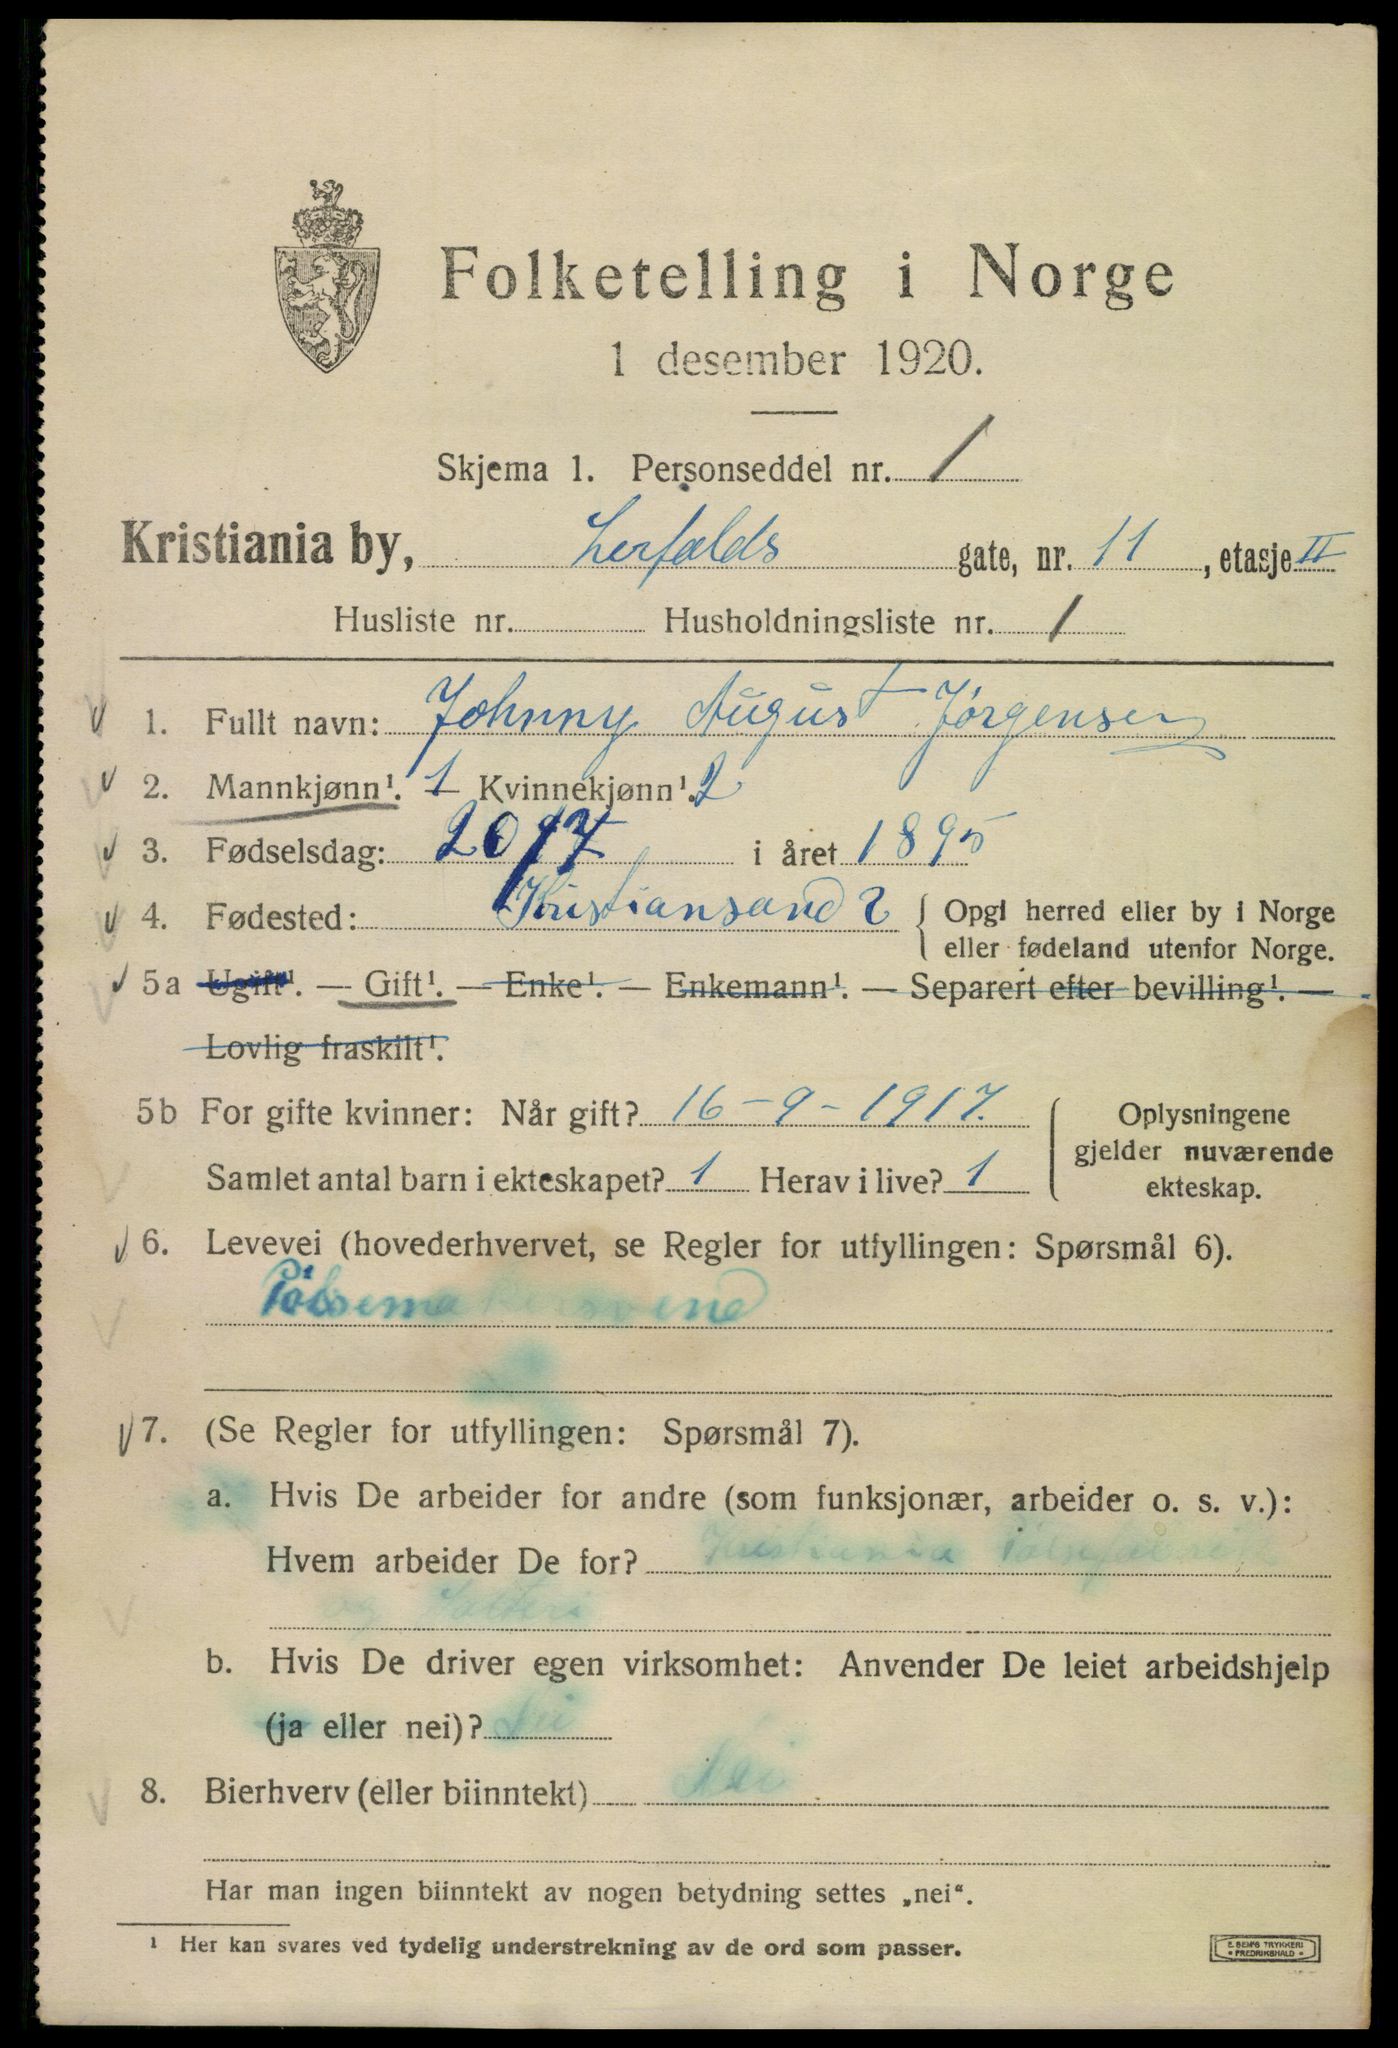 Folketelling i Norge
1 desember 1920.
Skjema 1. Personseddel nr. 1
Kristiania by, Lerfalds gate, nr. 11, etasje II
Husliste nr. Husholdningsliste nr. 1
1. Fullt navn: Johnny August Jørgensen
2. Mannkjønn¹. 1 Kvinnekjønn¹. 2
3. Fødselsdag: 20/7 i året 1895
4. Fødested: Kristiansand { Opgi herred eller by i Norge
eller fødeland utenfor Norge.
5a Ugift¹. — Gift¹. — Enke¹. — Enkemann¹. — Separert efter bevilling¹. —
Lovlig fraskilt¹.
5b For gifte kvinner: Når gift? 16-9-1917. { Oplysningene
gjelder nuværende
Samlet antal barn i ekteskapet? 1 Herav i live? 1 ekteskap.
6. Levevei (hovederhvervet, se Regler for utfyllingen: Spørsmål 6).
Pölsemakersvend
7. (Se Regler for utfyllingen: Spørsmål 7).
a. Hvis De arbeider for andre (som funksjonær, arbeider o. s. v.):
Hvem arbeider De for? Kristiania Pølsefabrik
og Salteri
b. Hvis De driver egen virksomhet: Anvender De leiet arbeidshjelp
(ja eller nei)? Nei
8. Bierhverv (eller biinntekt) Nei
Har man ingen biinntekt av nogen betydning settes „nei“.
¹ Her kan svares ved tydelig understrekning av de ord som passer.
E. SEM'S TRYKKERI
FREDRIKSHALD